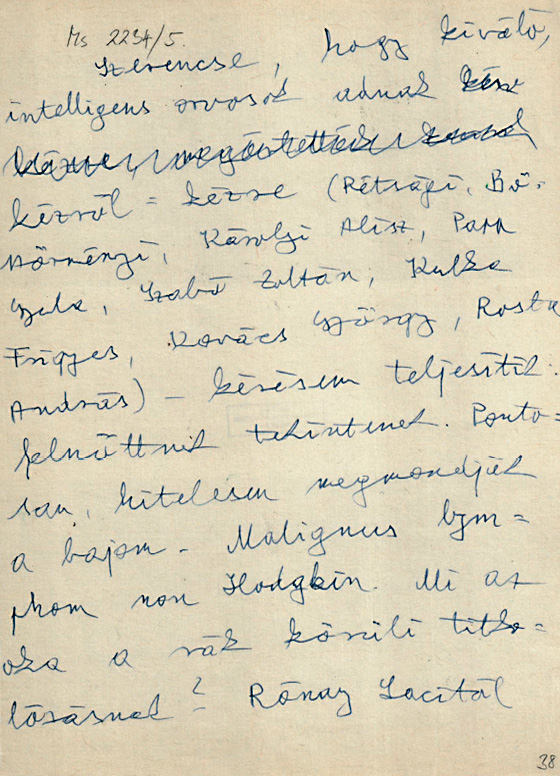 Ms 2234/5.
Szerencse, hogy kiváló,
intelligens orvosok adnak
kézről = kézre (Rétsági, Bö-
szörményi, Károlyi Alisz, Papp
Gyula, Szabó Zoltán, Kulka
Frigyes, Kovács György, Rosta
András) – kérésem teljesítik:
felnőttnek tekintenek. Ponto=
san, hitelesen megmondják
a bajom. Malignus lym=
phom non Hodgkin. Mi az
oka a rák körüli titko=
lózásnak? Rónay Lacitól
38